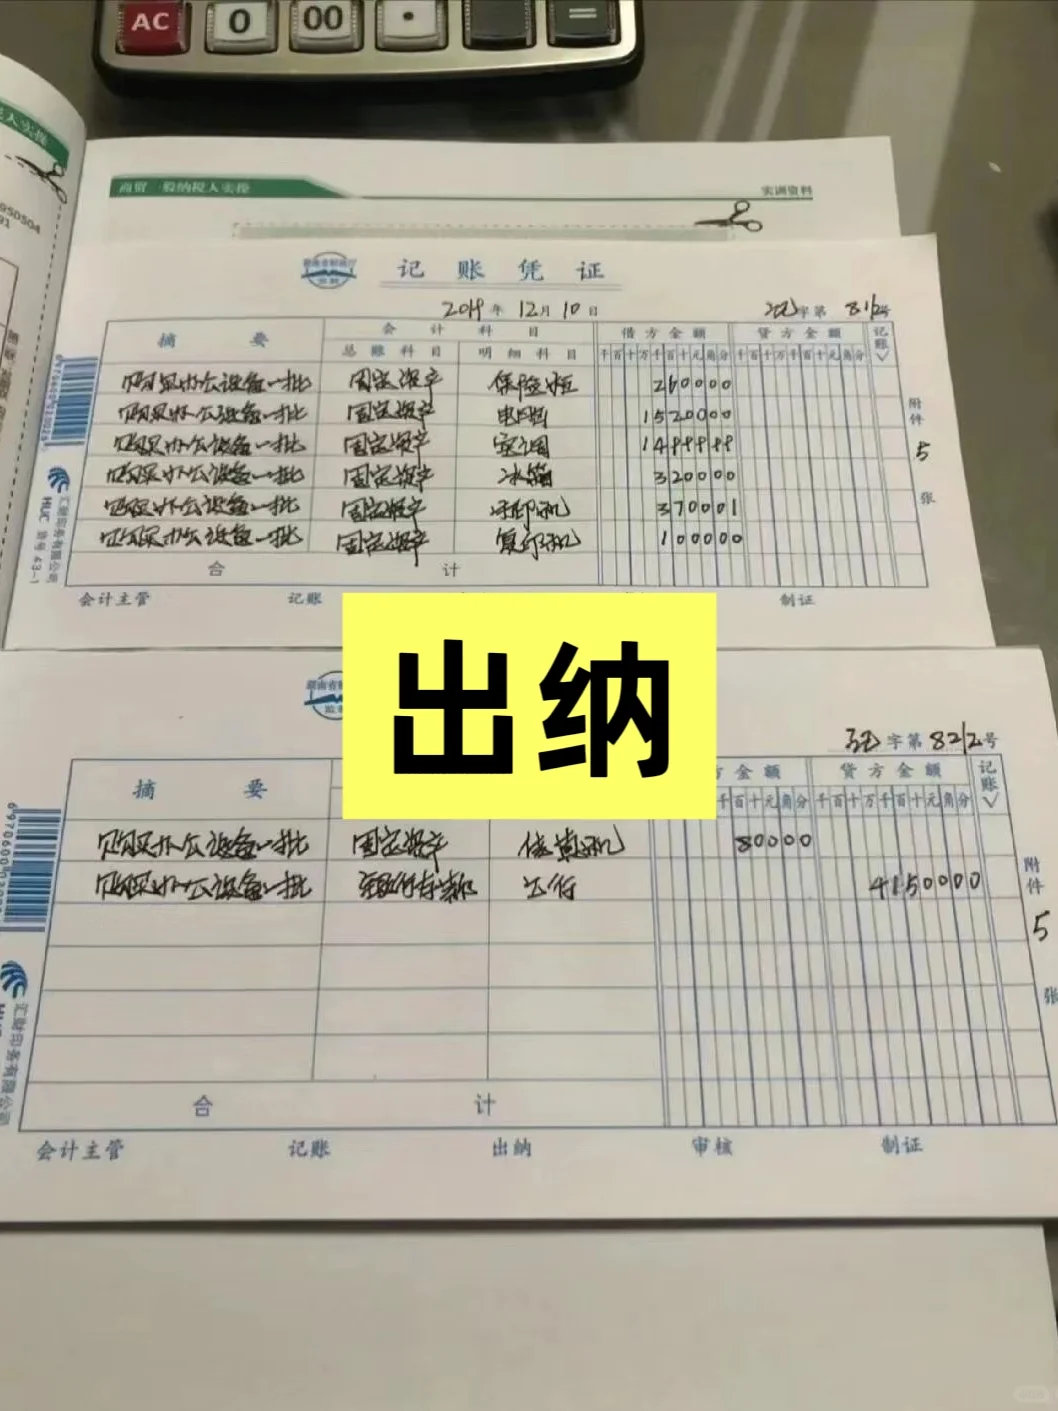 AC 0 00 · =
税人实操
商贸一般纳税人实操 实训资料
记账凭证
2019年 12月 10日 记字第 8 1/2号
摘要 会计科目 借方金额 贷方金额 记账√
总账科目 明细科目 千百十万千百十元角分 千百十万千百十元角分
购买办公设备一批 固定资产 保险柜 260000
购买办公设备一批 固定资产 电脑 1520000
购买办公设备一批 固定资产 空调 1499999
购买办公设备一批 固定资产 冰箱 320000
购买办公设备一批 固定资产 打印机 370001
购买办公设备一批 固定资产 复印机 100000
合计
附件 5 张
会计主管 记账 制证
汇财印务有限公司
HUC 货号 43-1
出纳
记字第 8 2/2号
摘要 方金额 贷方金额 记账√
千百十元角分 千百十万千百十元角分
购买办公设备一批 固定资产 传真机 80000
购买办公设备一批 银行存款 工行 4150000
合计
附件 5 张
会计主管 记账 出纳 审核 制证
汇财印务有限公司